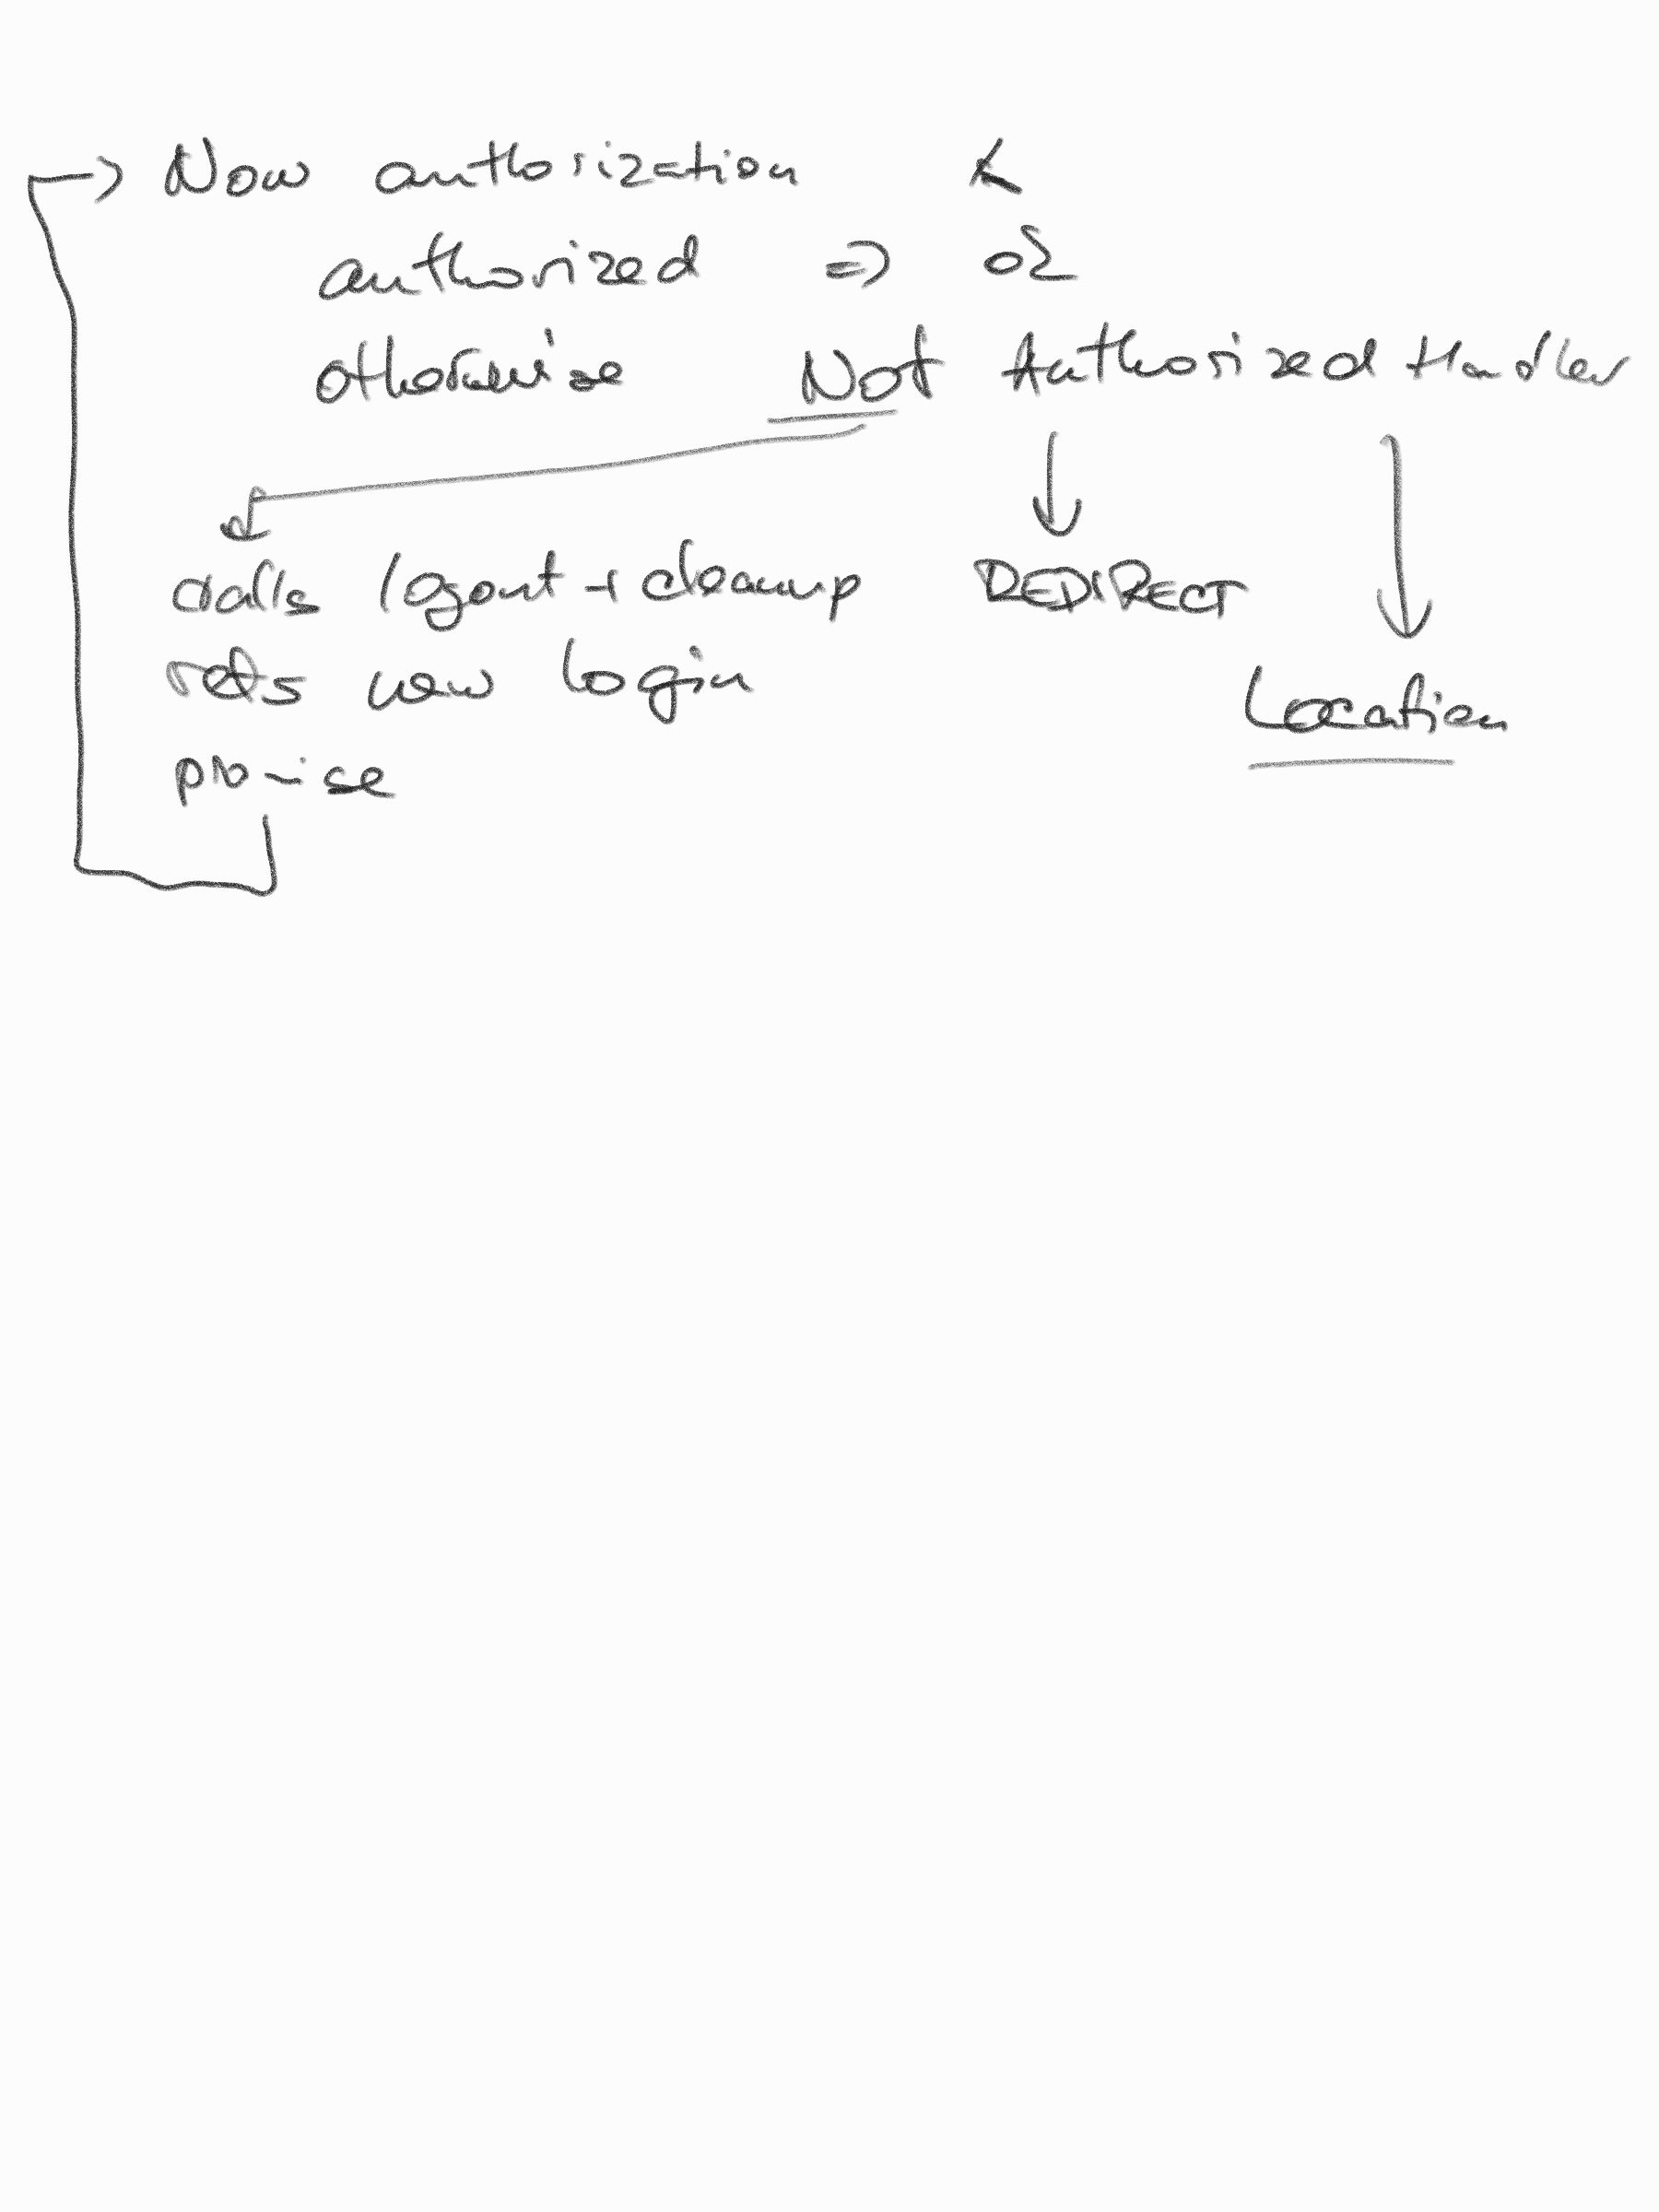 → Now authorization
authorized ⇒ ok
otherwise Not Authorized Handler
calls logout + cleanup REDIRECT
new login Location
promise